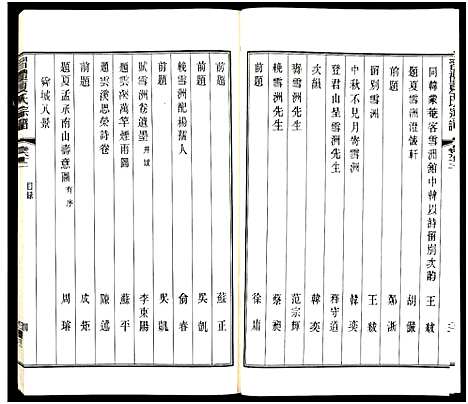 同韓奕菴客雪洲館中韓以詩留別次韵 王紱
題夏雪洲澄儀軒 胡儼
前題 鄭浙
留別雪洲 王紱
中秋不見月寄雪洲 韓奕
登君山呈雪洲先生 釋守道
次韻 韓奕
輓雪洲先生 范宗輝
輓雪洲先生 蔡昶
前題 徐庸
前題 蘇正
輓雪洲龍楊蕩人 俞春
前題 吳凱
賦雪洲卷遺墨 李東陽
題雲溪萬竿煙雨圖 蘇平
題雲溪思榮詩卷 陳遜
前題 成矩
題夏孟永南山壽意圖 有序 周璿
澄城八景
目錄